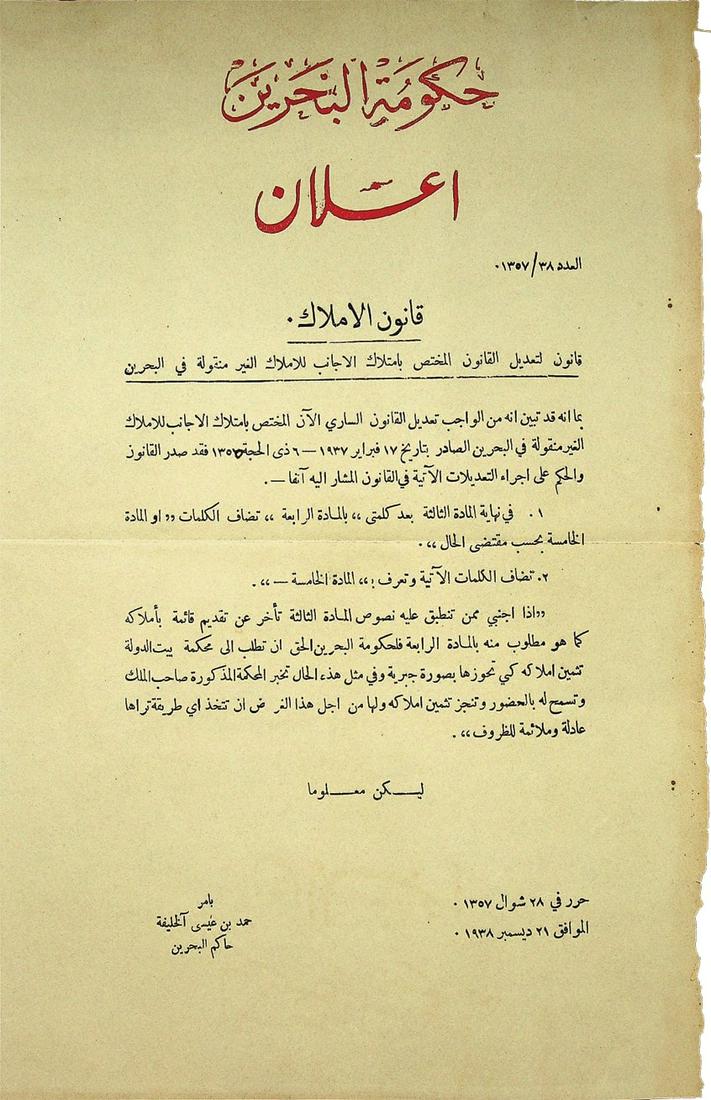 حكومة البحرين
اعلان
العدد ٣٨/ ١٣٥٧٠
قانون الاملاك ٠
قانون لتعديل القانون المختص بامتلاك الاجانب للاملاك الغير منقولة في البحرين
بما انه قد تبين انه من الواجب تعديل القانون الساري الآن المختص بامتلاك الاجانب للاملاك
الغير منقولة في البحرين الصادر بتاريخ ١٧ فبراير ١٩٣٧ — ٦ ذى الحجة فقد صدر القانون
والحكم على اجراء التعديلات الآتية في القانون المشار اليه آنفا —.
١٠ في نهاية المادة الثالثة بعد كلمتى ,, بالمادة الرابعة ,, تضاف الكلمات ,, او المادة
الخامسة بحسب مقتضى الحال ,, ٠
٢٠ تضاف الكلمات الآتية وتعرف ب ,, المادة الخامسة — ,, .
,, اذا اجنبي ممن تنطبق عليه نصوص المادة الثالثة تأخر عن تقديم قائمة بأملاكه
كما هو مطلوب منه بالمادة الرابعة فلحكومة البحرين الحق ان تطلب الى محكمة بيت الدولة
تثمين املاكه كي تحوزها بصورة جبرية وفي مثل هذه الحال تخبر المحكمة المذكورة صاحب الملك
وتسمح له بالحضور وتنجز تثمين املاكه ولها من اجل هذا الغر ض ان تتخذ اي طريقة تراها
عادلة وملائمة للظروف ,, .
ليكن معلوما
حرر في ٢٨ شوال ١٣٥٧ ٠
الموافق ٢١ ديسمبر ١٩٣٨ ٠
بامر
حمد بن عيسى آل خليفة
حاكم البحرين